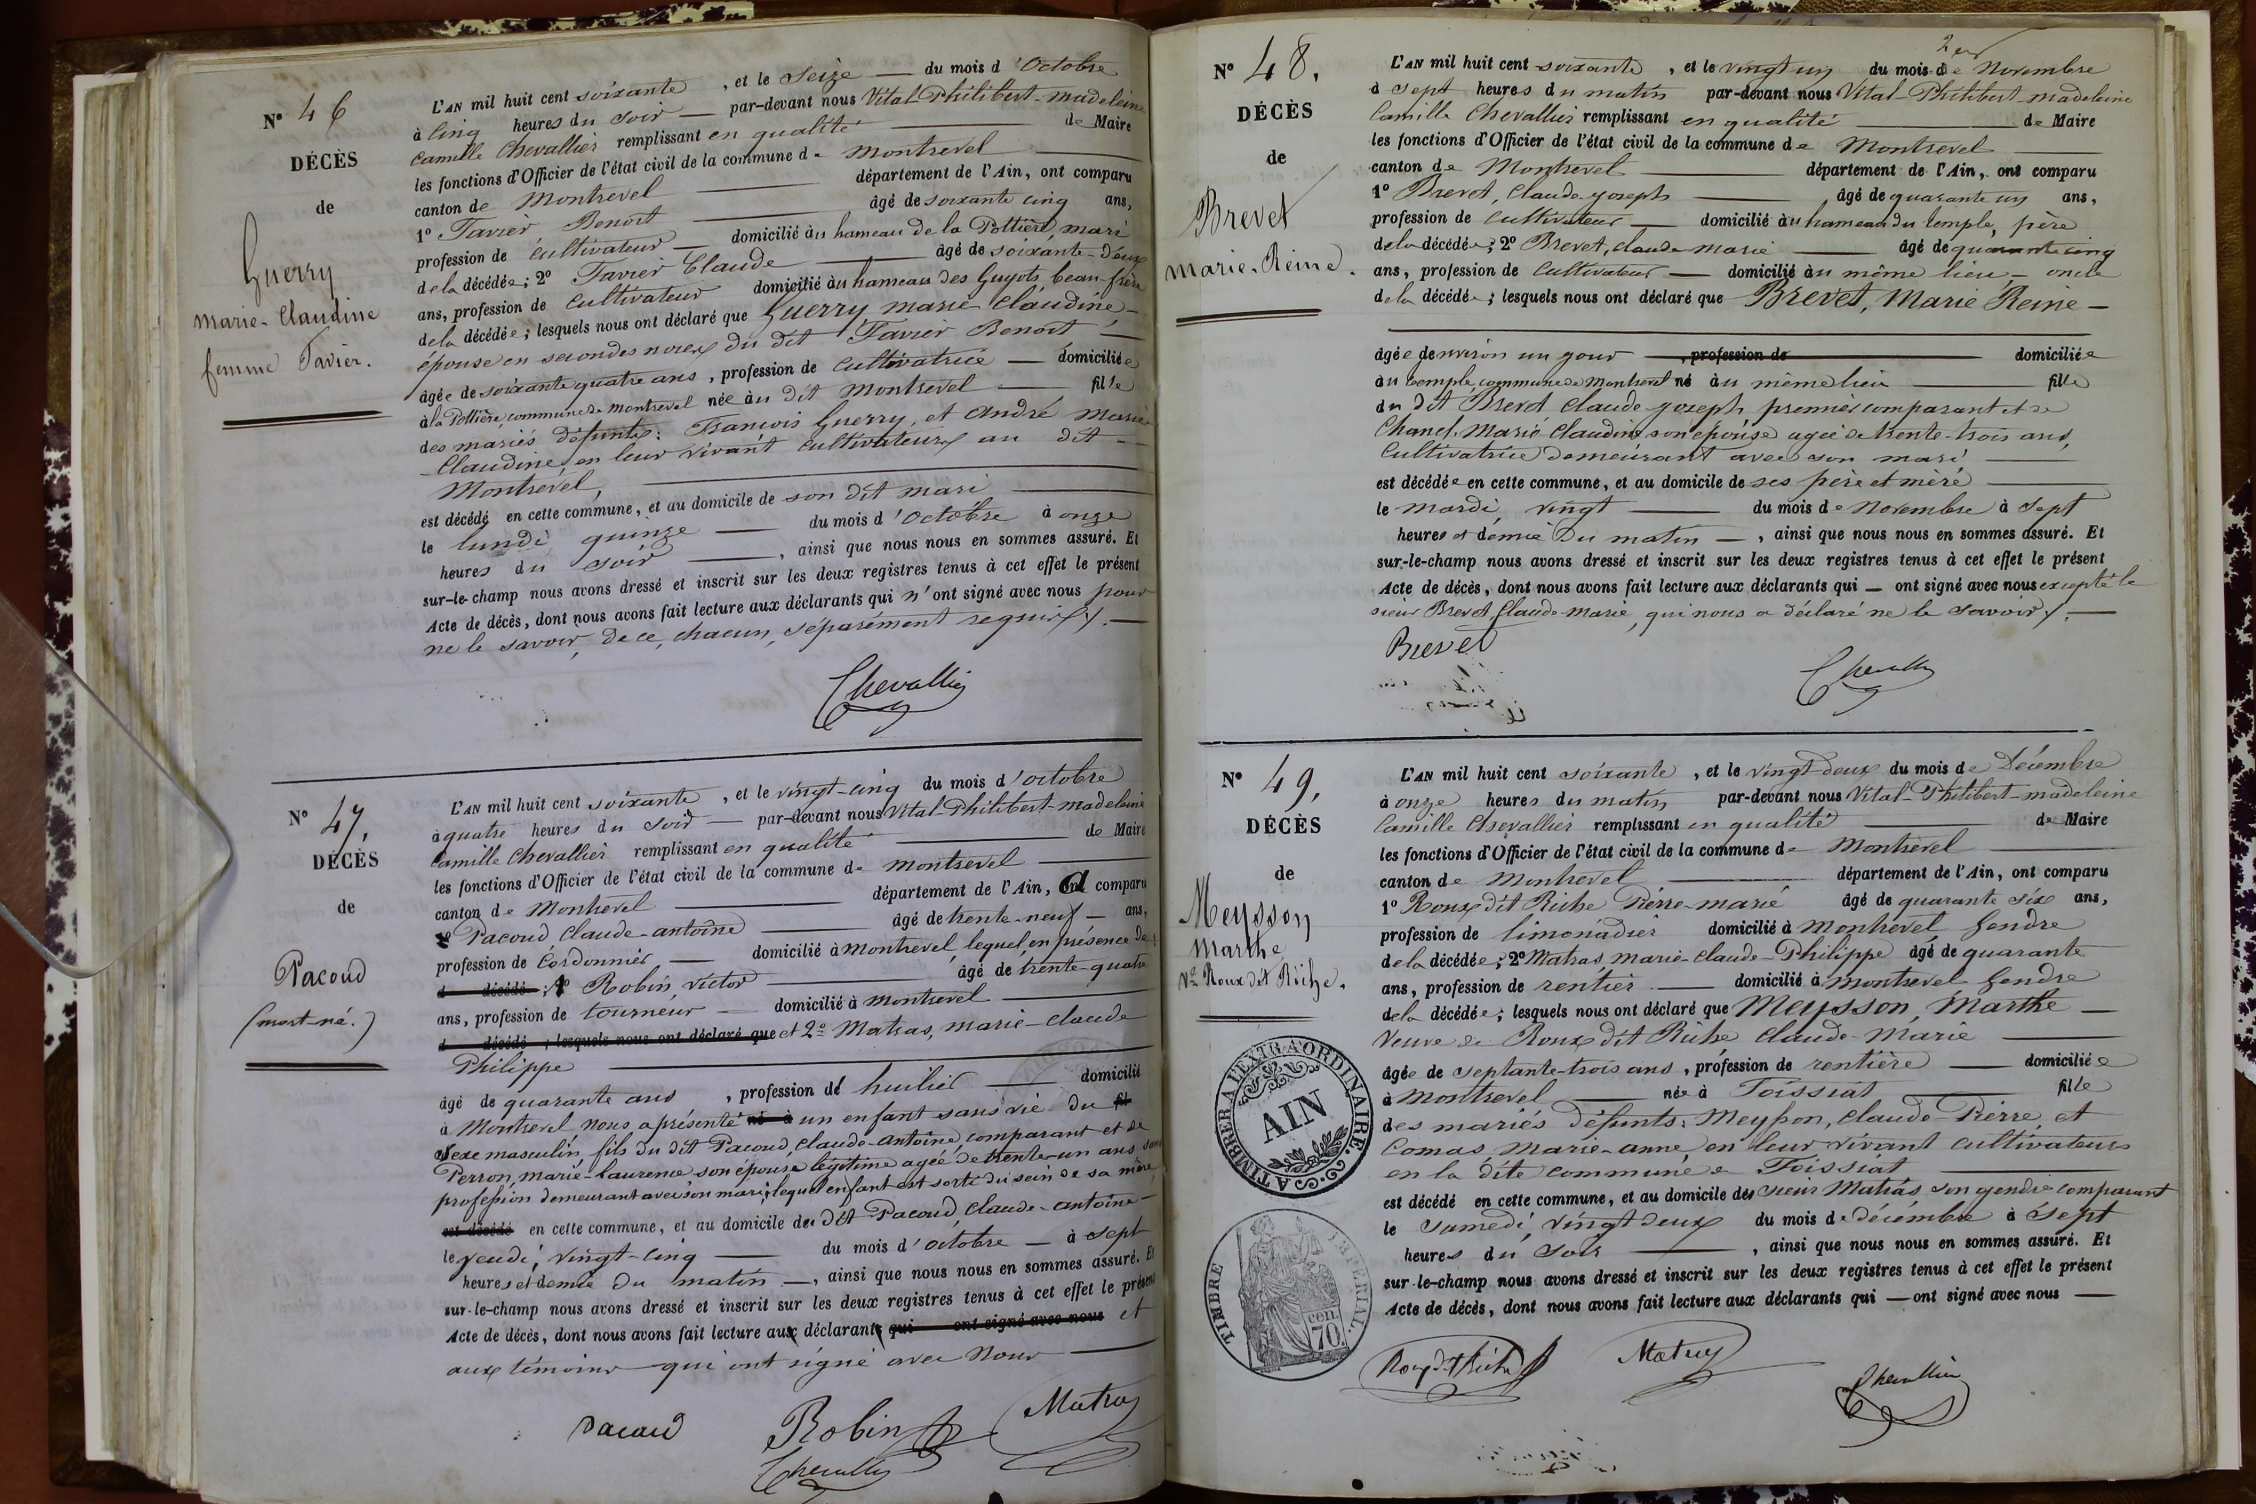 N° 46
DÉCÈS
de
Guerry
marie-Claudine
femme Favier.
L'AN mil huit cent soixante, et le Seize — du mois d'Octobre
à Cinq heures du soir — par-devant nous Vital-Philibert-madeleine
Camille Chevallier remplissant en qualité — de Maire
les fonctions d'Officier de l'état civil de la commune de Montrevel
canton de Montrevel — département de l'Ain, ont comparu
1° Favier Benoit — âgé de soixante cinq ans,
profession de Cultivateur — domicilié au hameau de la Pottière, mari
de la décédée; 2° Favier Claude — âgé de soixante-deux
ans, profession de Cultivateur domicilié au hameau des Guyots, beau-frère
de la décédée; lesquels nous ont déclaré que Guerry marie Claudine —
épouse en secondes noces du dit Favier Benoit —
âgée de soixante quatre ans, profession de Cultivatrice — domiciliée
à la Pottière, commune de Montrevel née au dit Montrevel — fille
des mariés défunts: François Guerry, et André Marie
Claudine, en leur vivant Cultivateurs au dit —
Montrevel,
est décédé en cette commune, et au domicile de son dit mari
le lundi quinze — du mois d'Octobre à onze
heures du soir —, ainsi que nous nous en sommes assuré. Et
sur-le-champ nous avons dressé et inscrit sur les deux registres tenus à cet effet le présent
Acte de décès, dont nous avons fait lecture aux déclarants qui n'ont signé avec nous pour
ne le savoir, de ce, chacun, séparément requis. —
Chevallier
N° 47.
DÉCÈS
de
Pacoud
(mort-né.)
L'AN mil huit cent soixante, et le vingt-cinq du mois d'octobre
à quatre heures du soir — par-devant nous Vital-Philibert-madeleine
Camille Chevallier remplissant en qualité — de Maire
les fonctions d'Officier de l'état civil de la commune de Montrevel —
canton de Montrevel — département de l'Ain, a comparu
Pacoud Claude-antoine — âgé de trente-neuf — ans,
profession de Cordonnier, — domicilié à Montrevel, lequel, en présence de
d décédé; 1° Robin, Victor — âgé de trente-quatre
ans, profession de tourneur — domicilié à Montrevel —
d décédé; lesquels nous ont déclaré que et 2° Matras, marie-Claude
Philippe
âgé de quarante ans, profession de huilier — domicilié
à Montrevel nous a présenté né à un enfant sans vie du fil
Sexe masculin, fils du dit Pacoud, Claude-antoine, comparant et de
Perron, marie-laurence son épouse légitime agée de trente-un ans sans
profession demeurant avec son mari; lequel enfant est sorti du sein de sa mère
est décédé en cette commune, et au domicile du dit Pacoud, Claude-antoine —
le jeudi, vingt-cinq — du mois d'octobre — à sept
heures et demie du matin —, ainsi que nous nous en sommes assuré. Et
sur-le-champ nous avons dressé et inscrit sur les deux registres tenus à cet effet le présent
Acte de décès, dont nous avons fait lecture aux déclarants qui ont signé avec nous et
aux témoins qui ont signé avec nous —
Pacoud Robin Matras
Chevallier
N° 48.
DÉCÈS
de
Brevet
marie-Reine.
L'AN mil huit cent soixante, et le vingt un du mois de Novembre
à sept heures du matin par-devant nous Vital-Philibert-madeleine
Camille Chevallier remplissant en qualité — de Maire
les fonctions d'Officier de l'état civil de la commune de Montrevel —
canton de Montrevel — département de l'Ain, ont comparu
1° Brevet, Claude joseph — âgé de quarante un ans,
profession de Cultivateur — domicilié au hameau du temple, père
de la décédée; 2° Brevet, Claude marie — âgé de quarante cinq
ans, profession de Cultivateur — domicilié au même lieu — oncle
de la décédée; lesquels nous ont déclaré que Brevet, Marie Reine —
âgée denviron un jour —, profession de — domiciliée
au temple, commune de Montrevel né au même lieu — fille
du dit Brevet Claude joseph premier comparant et de
Chanel Marie Claudine son épouse agée de trente-trois ans,
Cultivatrice demeurant avec son mari —
est décédée en cette commune, et au domicile de ses père et mère —
le mardi, vingt — du mois de Novembre à sept
heures et demie du matin —, ainsi que nous nous en sommes assuré. Et
sur-le-champ nous avons dressé et inscrit sur les deux registres tenus à cet effet le présent
Acte de décès, dont nous avons fait lecture aux déclarants qui — ont signé avec nous excepté le
sieur Brevet Claude-Marie, qui nous a déclaré ne le savoir. —
Brevet
Chevallier
N° 49.
DÉCÈS
de
Meysson
Marthe
Ve Roux dit Riche.
L'AN mil huit cent soixante, et le vingt-deux du mois de Décembre
à onze heures du matin par-devant nous Vital-Philibert-madeleine
Camille Chevallier remplissant en qualité — de Maire
les fonctions d'Officier de l'état civil de la commune de Montrevel —
canton de Montrevel — département de l'Ain, ont comparu
1° Roux dit Riche Pierre-marie âgé de quarante six ans,
profession de limonadier domicilié à Montrevel Gendre
de la décédée; 2° Matras, marie-Claude-Philippe âgé de quarante
ans, profession de rentier — domicilié à Montrevel Gendre
de la décédée; lesquels nous ont déclaré que Meysson, Marthe —
Veuve de Roux dit Riche Claude-Marie —
âgée de septante-trois ans, profession de rentière — domiciliée
à Montrevel — née à Foissiat — fille
des mariés défunts: Meysson, Claude-Pierre, et
Comas, Marie-anne, en leur vivant cultivateurs
en la dite commune de Foissiat —
est décédé en cette commune, et au domicile des sieur Matras son gendre comparant
le Samedi, vingt deux du mois de décembre à sept
heures du soir —, ainsi que nous nous en sommes assuré. Et
sur-le-champ nous avons dressé et inscrit sur les deux registres tenus à cet effet le présent
Acte de décès, dont nous avons fait lecture aux déclarants qui — ont signé avec nous —
Roux dit Riche Matras
Chevallier
A TIMBRER A L'EXTRAORDINAIRE.
AIN
TIMBRE IMPÉRIAL.
70 cen.